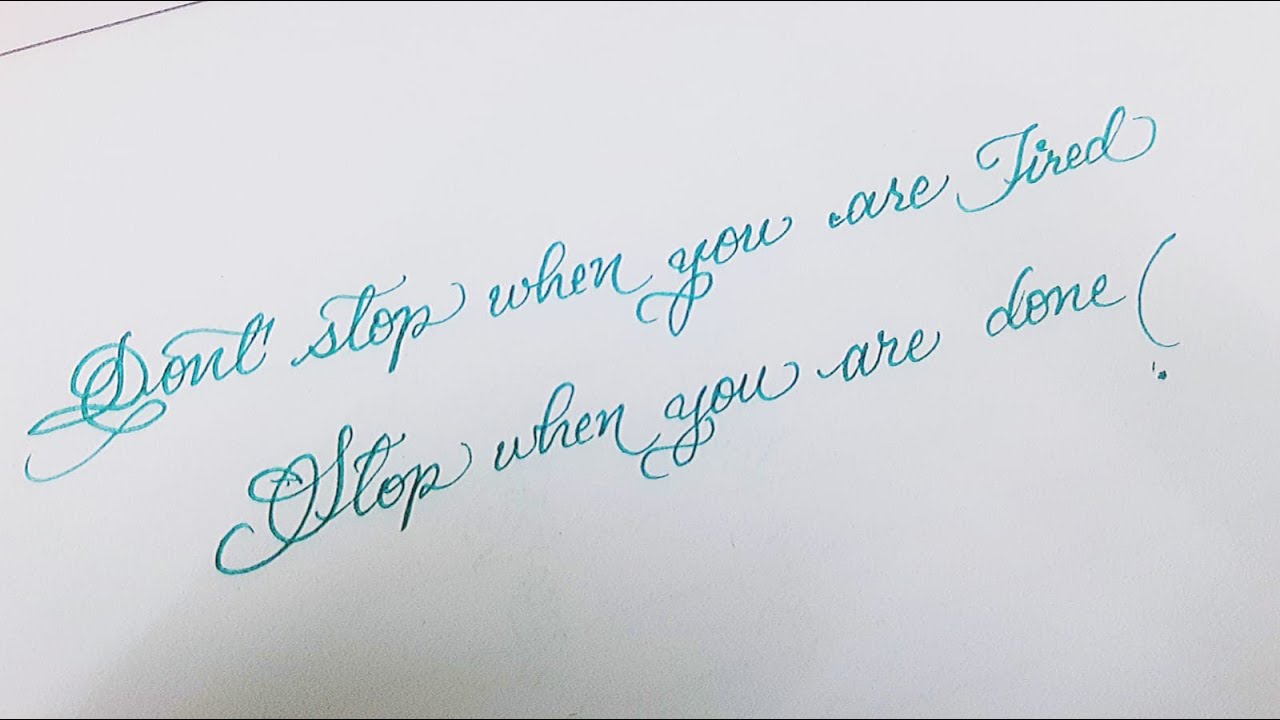 Don't stop when you are Tired
Stop when you are done!